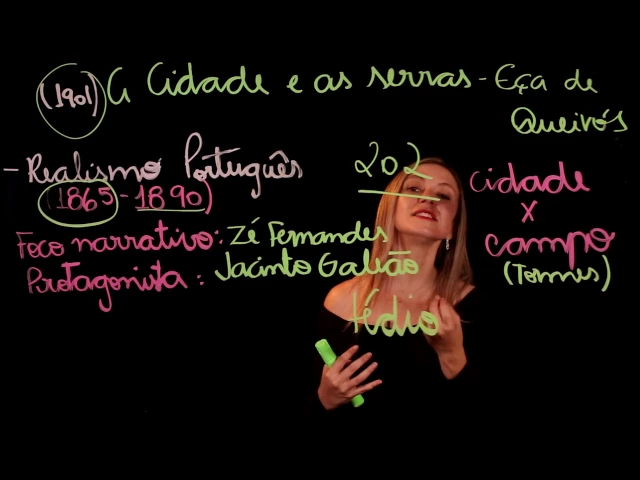 (1901) A Cidade e as serras - Eça de
Queirós
- Realismo Português
(1865 - 1890)
202
cidade
x
campo
(Tormes)
Foco narrativo: Zé Fernandes
Protagonista: Jacinto Galião
tédio